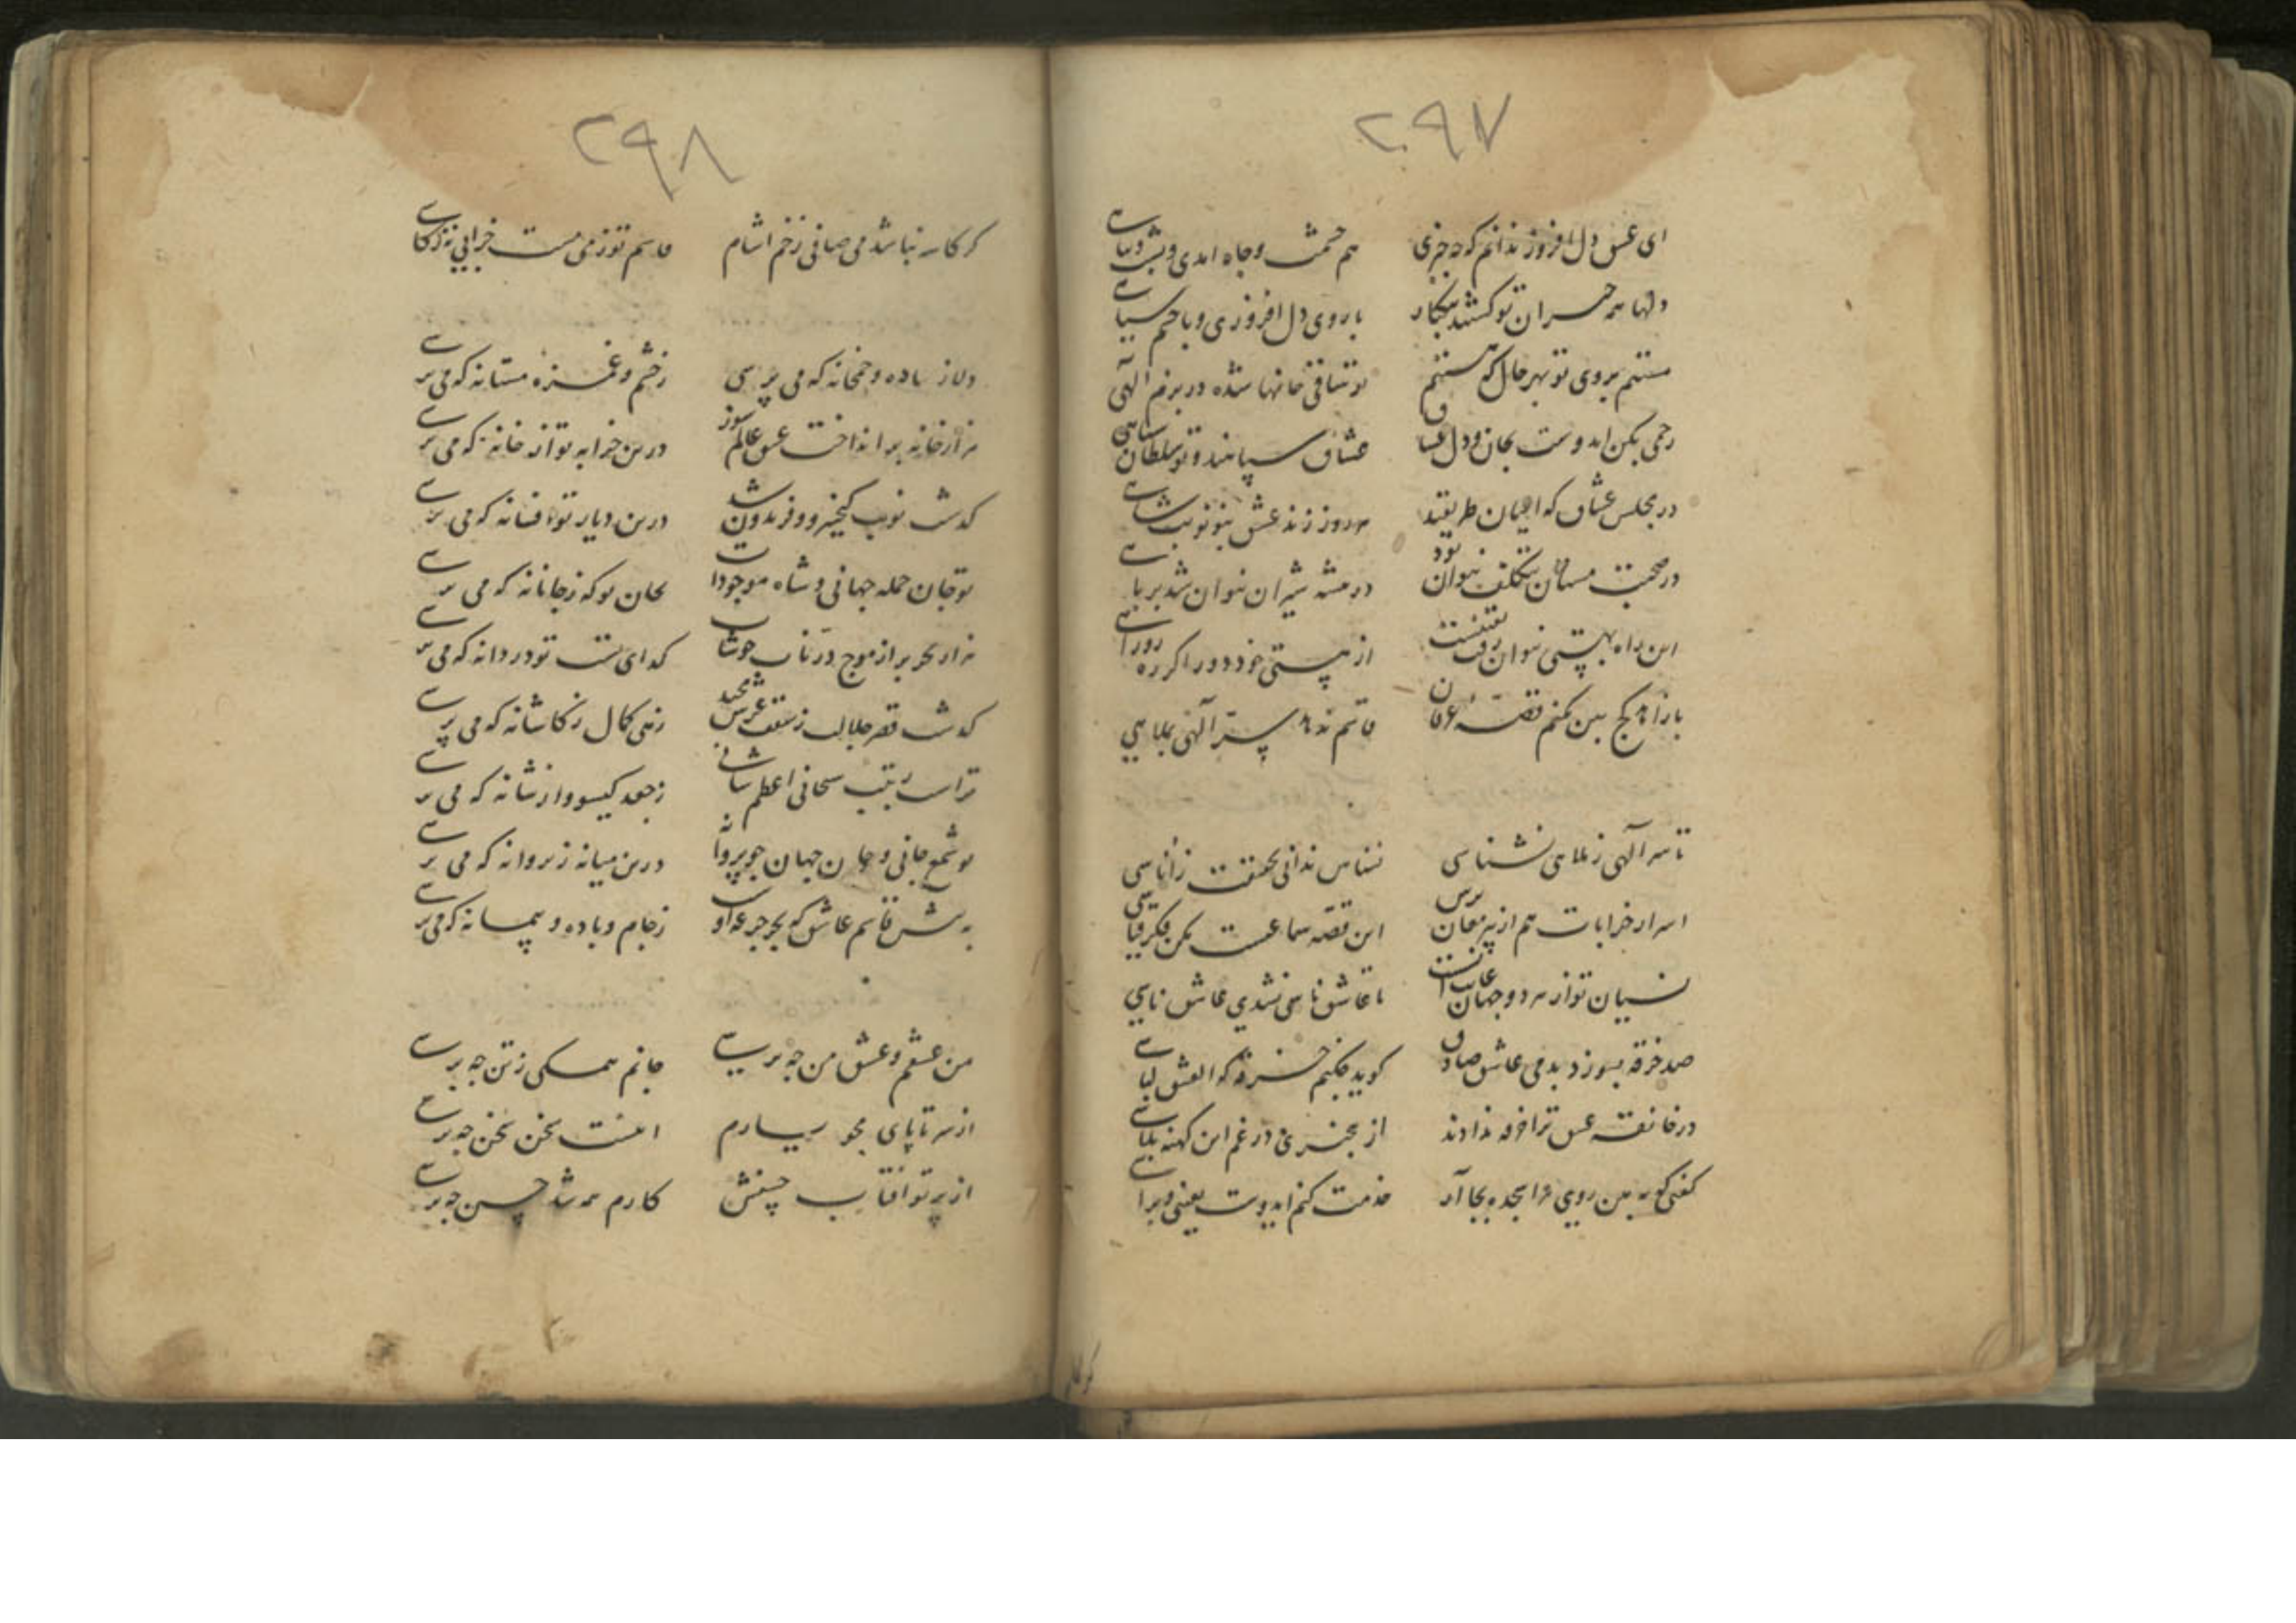 ۲۹۷
ای عشق دل افروز ندانم که چه چیزی هم حشمت و جاه آمدی و پشت و پناهی
دلها همه حیران تو گشتند بیکبار با روی دل افروزی و با چشم سیاهی
مستیم بروی تو بهر حال که هستیم تو ساقی جانها شده در بزم الهی
رحمی بکن ای دوست بجان و دل عشاق عشاق سپاهند و تو سلطان سپاهی
در مجلس عشاق که اعیان طریقند هر روز زند عشق بنو نوبت شاهی
در صحبت مستان بتکلف نتوان بود در بیشه شیران نتوان شد
این راه بهستی نتوان رفت بتحقیق از هستی خود دور اگر ره
باز آ کج بین نکنم قصه عرفان قاسم ندهد سر الهی بملاهی
تا سر الهی ز ملاهی نشناسی نسناس ندانی بحقیقت ز اناسی
اسرار خرابات هم از پیر مغان پرس این قصه سماعیست مکن فکر قیاسی
نسیان تو از هر دو جهان تا عاشق ناسی نشدی عاشق ناسی
صد خرقه بسوزد بدمی عاشق صادق گوید فکنم خرقه که العشق لباسی
در خانقه عشق ترا خرقه ندادند از بیخبری در غم این کهنه پلاسی
گفتی که ببین روی مرا سجده بجا آر خدمت کنم ای دوست بعینی و براسی
گر کار
۲۹۸
گر کار نباشد می صافی ز خم آشام قاسم تو ز می مست خرابی نه ز کاسی
دلا ز باده و خمخانه که می پرسی ز چشم و غمزه مستانه که می پرسی
هزار خانه برانداخت عشق عالم سوز درین خرابه تو از خانه که می پرسی
گذشت نوبت کیخسرو و فریدون شد درین دیار تو افسانه که می پرسی
تو جان جمله جهانی و شاه موجودات بجان تو که ز جانانه که می پرسی
هزار بحر پر از موج در ناب خوشاب کدای تست تو دردانه که می پرسی
گذشت قصر جلالت ز سقف عرش مجید زهی کمال ز کاشانه که می پرسی
تراست رتبت سبحانی اعظم شانی ز جعد گیسو و از شانه که می پرسی
تو شمع جانی و جان جهان چو پروانه درین میانه ز پروانه که می پرسی
بپرسش قاسم عاشق که بحر جرعه اوست ز جام و باده و پیمانه که می پرسی
من عشقم و عشق من چه پرسی جانم همگی ز تن چه پرسی
از سر تا پای محو یارم اینست سخن سخن چه پرسی
از پرتو آفتاب حسنش کارم همه شد حسن چه پرسی